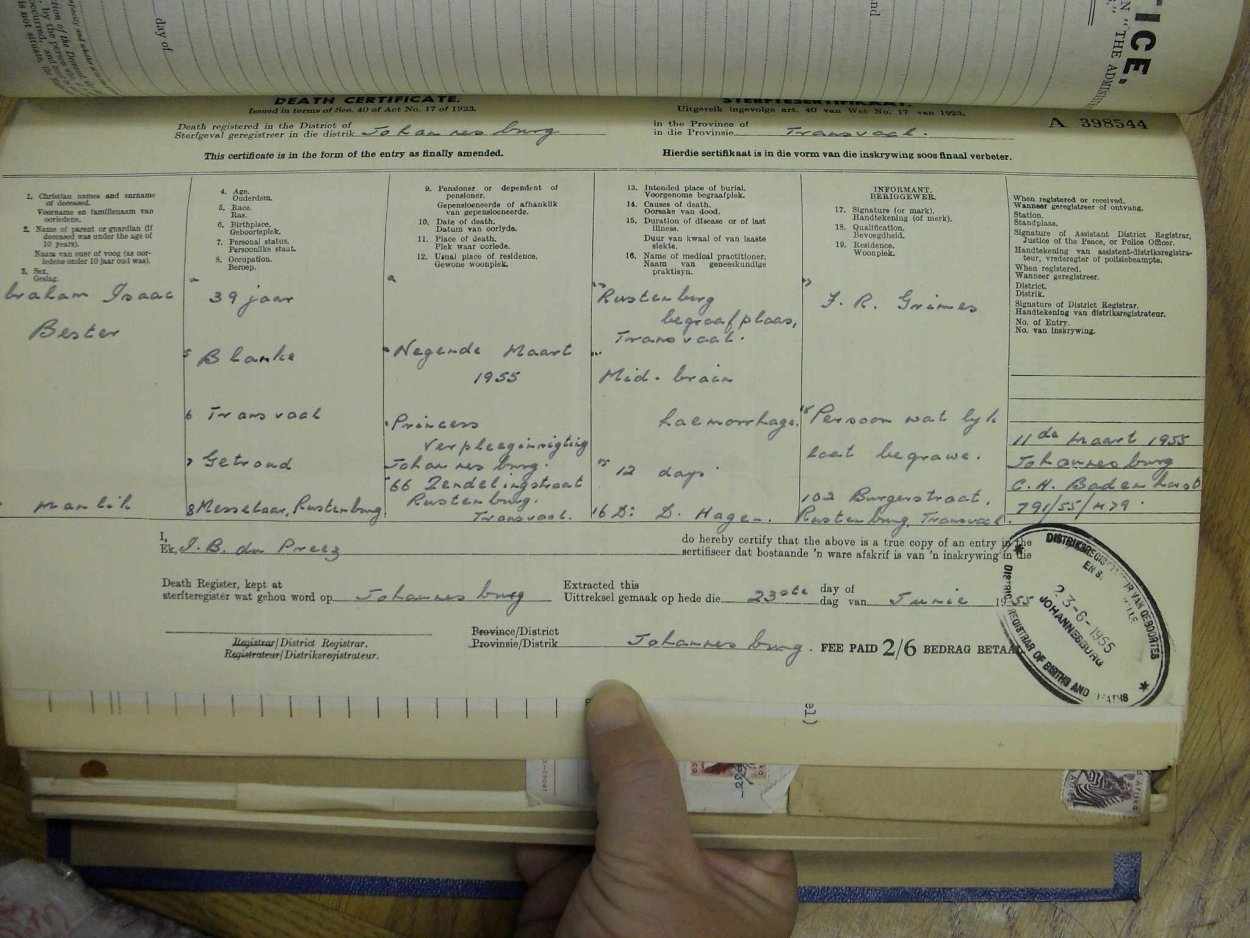 TICE,
N "THE ADMINIS
day of
and
DEATH CERTIFICATE.
STERFTESERTIFIKAAT.
Issued in terms of Sec. 40 of Act No. 17 of 1923.
Uitgereik ingevolge art. 40 van Wet No. 17 van 1923.
Death registered in the District of
Sterfgeval geregistreer in die distrik Johannesburg
in the Province of
in die Provinsie Transvaal.
A 398544
This certificate is in the form of the entry as finally amended.
Hierdie sertifikaat is in die vorm van die inskrywing soos finaal verbeter.
1. Christian names and surname
of deceased.
Voorname en familienaam van
oorledene.
2. Name of parent or guardian (if
deceased was under the age of
10 years).
Naam van ouer of voog (as oor-
ledene onder 10 jaar oud was).
3. Sex.
Geslag.
braham Isaac
Bester
manlik
4. Age.
Ouderdom.
5. Race.
Ras.
6. Birthplace.
Geboorteplek.
7. Personal status.
Persoonlike staat.
8. Occupation.
Beroep.
39 jaar
5 Blanke
6 Transvaal
7 Getroud
8 Messelaar, Rustenburg
9. Pensioner or dependent of
pensioner.
Gepensioneerde of afhanklik
van gepensioneerde.
10. Date of death.
Datum van oorlyde.
11. Place of death.
Plek waar oorlede.
12. Usual place of residence.
Gewone woonplek.
Negende Maart
1955
Princess
Verpleeginrigting
Johannesburg.
66 Zendelingstraat
Rustenburg.
Transvaal.
13. Intended place of burial.
Voorgenome begraafplek.
14. Causes of death.
Oorsake van dood.
15. Duration of disease or of last
illness.
Duur van kwaal of van laaste
siekte.
16. Name of medical practitioner.
Naam van geneeskundige
praktisyn.
Rustenburg
begraafplaas,
Transvaal.
Mid-brain
haemorrhage.
12 days
16 Dr. D. Hagen.
INFORMANT.
BERIGGEWER.
17. Signature (or mark).
Handtekening (of merk).
18. Qualification.
Bevoegdheid.
19. Residence.
Woonplek.
F. R. Grimes
Persoon wat lyk
laat begrawe.
102 Burgerstraat,
Rustenburg, Transvaal.
When registered or received.
Wanneer geregistreer of ontvang.
Station.
Standplaas.
Signature of Assistant District Registrar,
Justice of the Peace, or Police Officer.
Handtekening van assistent-distriksregistra-
teur, vrederegter of polisiebeampte.
When registered.
Wanneer geregistreer.
District.
Distrik.
Signature of District Registrar.
Handtekening van distriksregistrateur.
No. of Entry.
No. van Inskrywing.
11de Maart 1955
Johannesburg
C. H. Badenhorst
791/55/479
I,
Ek, J. B. du Preez
do hereby certify that the above is a true copy of an entry in the
sertifiseer dat bostaande 'n ware afskrif is van 'n inskrywing in die
Death Register, kept at
sterfteregister wat gehou word op Johannesburg
Extracted this
Uittreksel gemaak op hede die 23ste
day of
dag van Junie 1955
Registrar/District Registrar.
Registrateur/Distriksregistrateur.
Province/District
Provinsie/Distrik Johannesburg.
FEE PAID 2/6 BEDRAG BETAAL
23-6-1955
JOHANNESBURG
REGISTRAR OF BIRTHS AND DEATHS